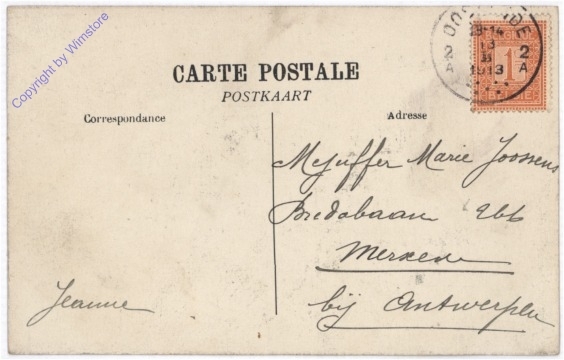 Copyright by Wimstore
CARTE POSTALE
POSTKAART
Correspondance
Adresse
1
2 2
A A
1913
Mejuffer Marie Joossens
Bredabaan 266
Merxem
bij Antwerpen
Jeanne